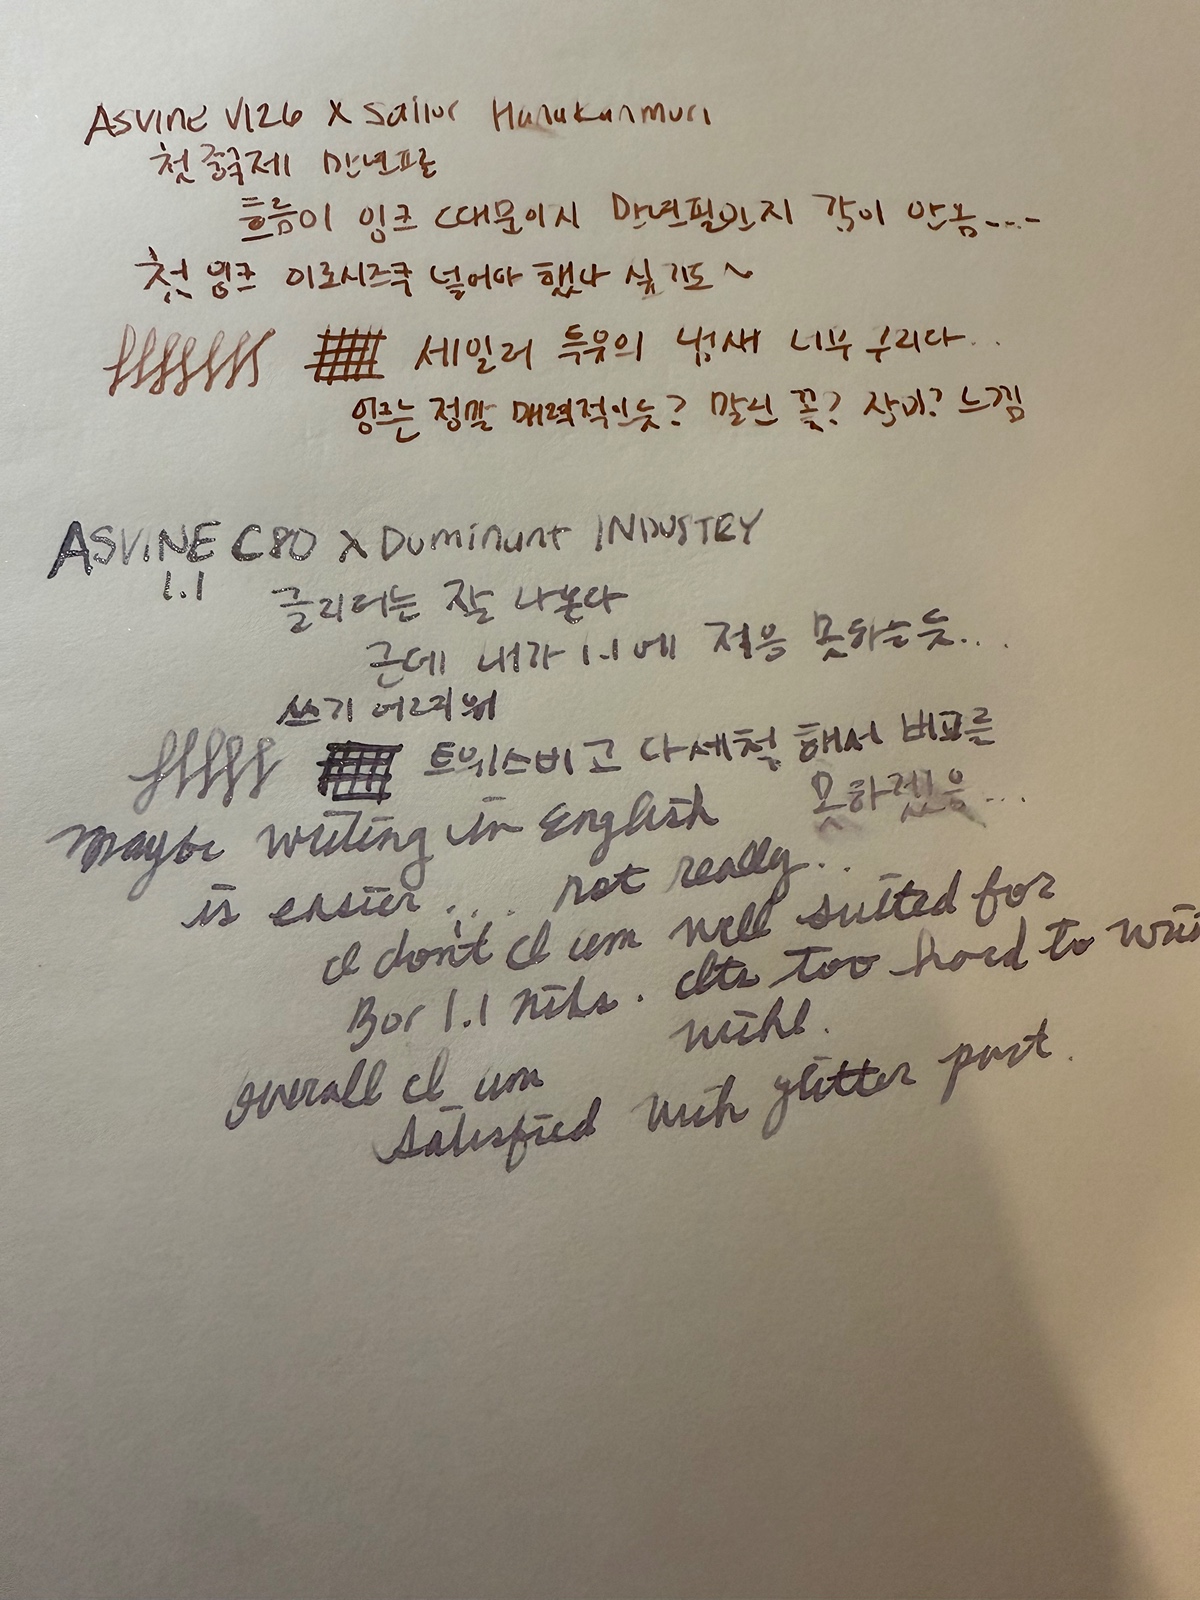 ASVINE V126 X Sailor Hanakanmuri
첫 중국제 만년필
흐름이 잉크 때문인지 만년필인지 감이 안옴....
첫 잉크 이로시주쿠 넣어야 했나 싶기도~
세일러 특유의 냄새 너무 구리다..
잉크는 정말 매력적인듯? 말린 꽃? 장미? 느낌
ASVINE C80 X Dominant INDUSTRY
1.1
글리터는 잘 나온다
근데 내가 1.1에 적응 못하는듯...
쓰기 어려워
트위스비고 다 세척 해서 비교를
못하겠음...
Maybe writing in English
is easier.... not really..
I don't I am well suited for
Bor 1.1 nibs. Its too hard to
with.
overall I am
satisfied with glitter part.